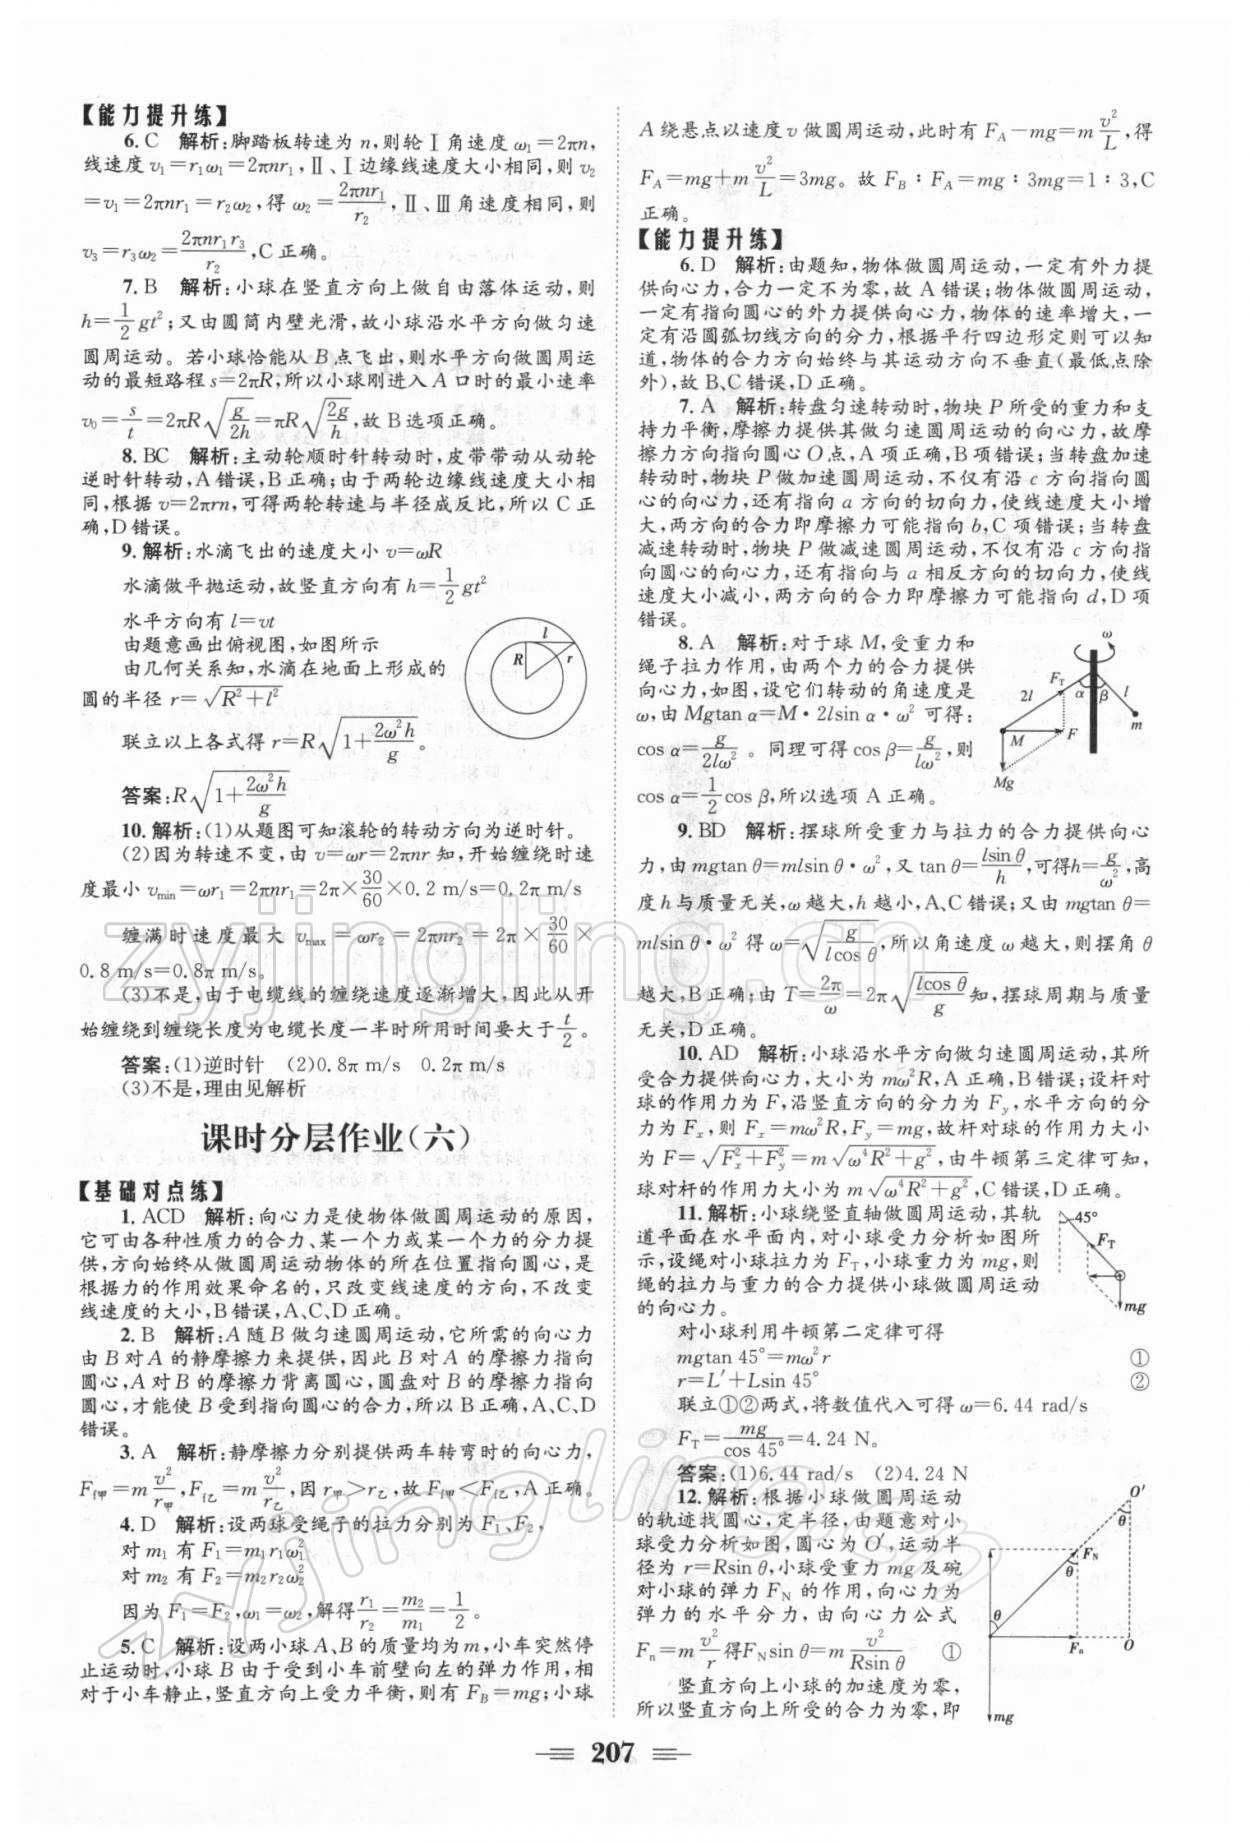 【能力提升练】
6. C 解析:脚踏板转速为 n,则轮Ⅰ角速度 ω₁=2πn,
线速度 v₁=r₁ω₁=2πnr₁,Ⅱ、Ⅰ边缘线速度大小相同,则 v₂
=v₁=2πnr₁=r₂ω₂,得 ω₂=2πnr₁/r₂,Ⅱ、Ⅲ角速度相同,则
v₃=r₃ω₂=2πnr₁r₃/r₂,C 正确。
7. B 解析:小球在竖直方向上做自由落体运动,则
h=1/2gt²;又由圆筒内壁光滑,故小球沿水平方向做匀速
圆周运动。若小球恰能从 B 点飞出,则水平方向做圆周运
动的最短路程 s=2πR,所以小球刚进入 A 口时的最小速率
v₀=s/t=2πR√(g/2h)=πR√(2g/h),故 B 选项正确。
8. BC 解析:主动轮顺时针转动时,皮带带动从动轮
逆时针转动,A 错误,B 正确;由于两轮边缘线速度大小相
同,根据 v=2πrn,可得两轮转速与半径成反比,所以 C 正
确,D 错误。
9. 解析:水滴飞出的速度大小 v=ωR
水滴做平抛运动,故竖直方向有 h=1/2gt²
水平方向有 l=vt
由题意画出俯视图,如图所示
由几何关系知,水滴在地面上形成的
圆的半径 r=√(R²+l²)
联立以上各式得 r=R√(1+2ω²h/g)。
答案:R√(1+2ω²h/g)
l
R
r
10. 解析:(1)从题图可知滚轮的转动方向为逆时针。
(2)因为转速不变,由 v=ωr=2πnr 知,开始缠绕时速
度最小 vmin=ωr₁=2πnr₁=2π×30/60×0.2 m/s=0.2π m/s
缠满时速度最大 vmax=ωr₂=2πnr₂=2π×30/60×
0.8 m/s=0.8π m/s。
(3)不是,由于电缆线的缠绕速度逐渐增大,因此从开
始缠绕到缠绕长度为电缆长度一半时所用时间要大于 t/2。
答案:(1)逆时针 (2)0.8π m/s 0.2π m/s
(3)不是,理由见解析
课时分层作业(六)
【基础对点练】
1. ACD 解析:向心力是使物体做圆周运动的原因,
它可由各种性质力的合力、某一个力或某一个力的分力提
供,方向始终从做圆周运动物体的所在位置指向圆心,是
根据力的作用效果命名的,只改变线速度的方向,不改变
线速度的大小,B 错误,A、C、D 正确。
2. B 解析:A 随 B 做匀速圆周运动,它所需的向心力
由 B 对 A 的静摩擦力来提供,因此 B 对 A 的摩擦力指向
圆心,A 对 B 的摩擦力背离圆心,圆盘对 B 的摩擦力指向
圆心,才能使 B 受到指向圆心的合力,所以 B 正确,A、C、D
错误。
3. A 解析:静摩擦力分别提供两车转弯时的向心力,
Ff甲=mv²/r甲,Ff乙=mv²/r乙,因 r甲>r乙,故 Ff甲<Ff乙,A 正确。
4. D 解析:设两球受绳子的拉力分别为 F₁、F₂,
对 m₁ 有 F₁=m₁r₁ω₁²
对 m₂ 有 F₂=m₂r₂ω₂²
因为 F₁=F₂,ω₁=ω₂,解得 r₁/r₂=m₂/m₁=1/2。
5. C 解析:设两小球 A、B 的质量均为 m,小车突然停
止运动时,小球 B 由于受到小车前壁向左的弹力作用,相
对于小车静止,竖直方向上受力平衡,则有 F_B=mg;小球
A 绕悬点以速度 v 做圆周运动,此时有 F_A-mg=mv²/L,得
F_A=mg+mv²/L=3mg。故 F_B∶F_A=mg∶3mg=1∶3,C
正确。
【能力提升练】
6. D 解析:由题知,物体做圆周运动,一定有外力提
供向心力,合力一定不为零,故 A 错误;物体做圆周运动,
一定有指向圆心的外力提供向心力,物体的速率增大,一
定有沿圆弧切线方向的分力,根据平行四边形定则可以知
道,物体的合力方向始终与其运动方向不垂直(最低点除
外),故 B、C 错误,D 正确。
7. A 解析:转盘匀速转动时,物块 P 所受的重力和支
持力平衡,摩擦力提供其做匀速圆周运动的向心力,故摩
擦力方向指向圆心 O 点,A 项正确,B 项错误;当转盘加速
转动时,物块 P 做加速圆周运动,不仅有沿 c 方向指向圆
心的向心力,还有指向 a 方向的切向力,使线速度大小增
大,两方向的合力即摩擦力可能指向 b,C 项错误;当转盘
减速转动时,物块 P 做减速圆周运动,不仅有沿 c 方向指
向圆心的向心力,还有指向与 a 相反方向的切向力,使线
速度大小减小,两方向的合力即摩擦力可能指向 d,D 项
错误。
8. A 解析:对于球 M,受重力和
绳子拉力作用,由两个力的合力提供
向心力,如图,设它们转动的角速度是
ω,由 Mgtan α=M·2lsin α·ω² 可得:
cos α=g/2lω²。同理可得 cos β=g/lω²,则
cos α=1/2cos β,所以选项 A 正确。
ω
F_T
2l
α
β
l
m
M
F
Mg
9. BD 解析:摆球所受重力与拉力的合力提供向心
力,由 mgtan θ=mlsin θ·ω²,又 tan θ=lsin θ/h,可得h=g/ω²,高
度 h 与质量无关,ω 越大,h 越小,A、C 错误;又由 mgtan θ=
mlsin θ·ω² 得 ω=√(g/lcos θ),所以角速度 ω 越大,则摆角 θ
越大,B 正确;由 T=2π/ω=2π√(lcos θ/g)知,摆球周期与质量
无关,D 正确。
10. AD 解析:小球沿水平方向做匀速圆周运动,其所
受合力提供向心力,大小为 mω²R,A 正确,B 错误;设杆对
球的作用力为 F,沿竖直方向的分力为 F_y,水平方向的分
力为 F_x,则 F_x=mω²R,F_y=mg,故杆对球的作用力大小
为 F=√(F_x²+F_y²)=m√(ω⁴R²+g²),由牛顿第三定律可知,
球对杆的作用力大小为 m√(ω⁴R²+g²),C 错误,D 正确。
11. 解析:小球绕竖直轴做圆周运动,其轨
道平面在水平面内,对小球受力分析如图所
示,设绳对小球拉力为 F_T,小球重力为 mg,则
绳的拉力与重力的合力提供小球做圆周运动
的向心力。
45°
F_T
mg
对小球利用牛顿第二定律可得
mgtan 45°=mω²r ①
r=L′+Lsin 45° ②
联立①②两式,将数值代入可得 ω=6.44 rad/s
F_T=mg/cos 45°=4.24 N。
答案:(1)6.44 rad/s (2)4.24 N
12. 解析:根据小球做圆周运动
的轨迹找圆心,定半径,由题意对小
球受力分析如图,圆心为 O′,运动半
径为 r=Rsin θ,小球受重力 mg 及碗
对小球的弹力 F_N 的作用,向心力为
弹力的水平分力,由向心力公式
F_n=mv²/r得F_Nsin θ=mv²/Rsin θ ①
竖直方向上小球的加速度为零,
所以竖直方向上所受的合力为零,即
O′
θ
F_N
θ
θ
F_n
O
mg
207
zyjingling.cn
zyjingling.cn